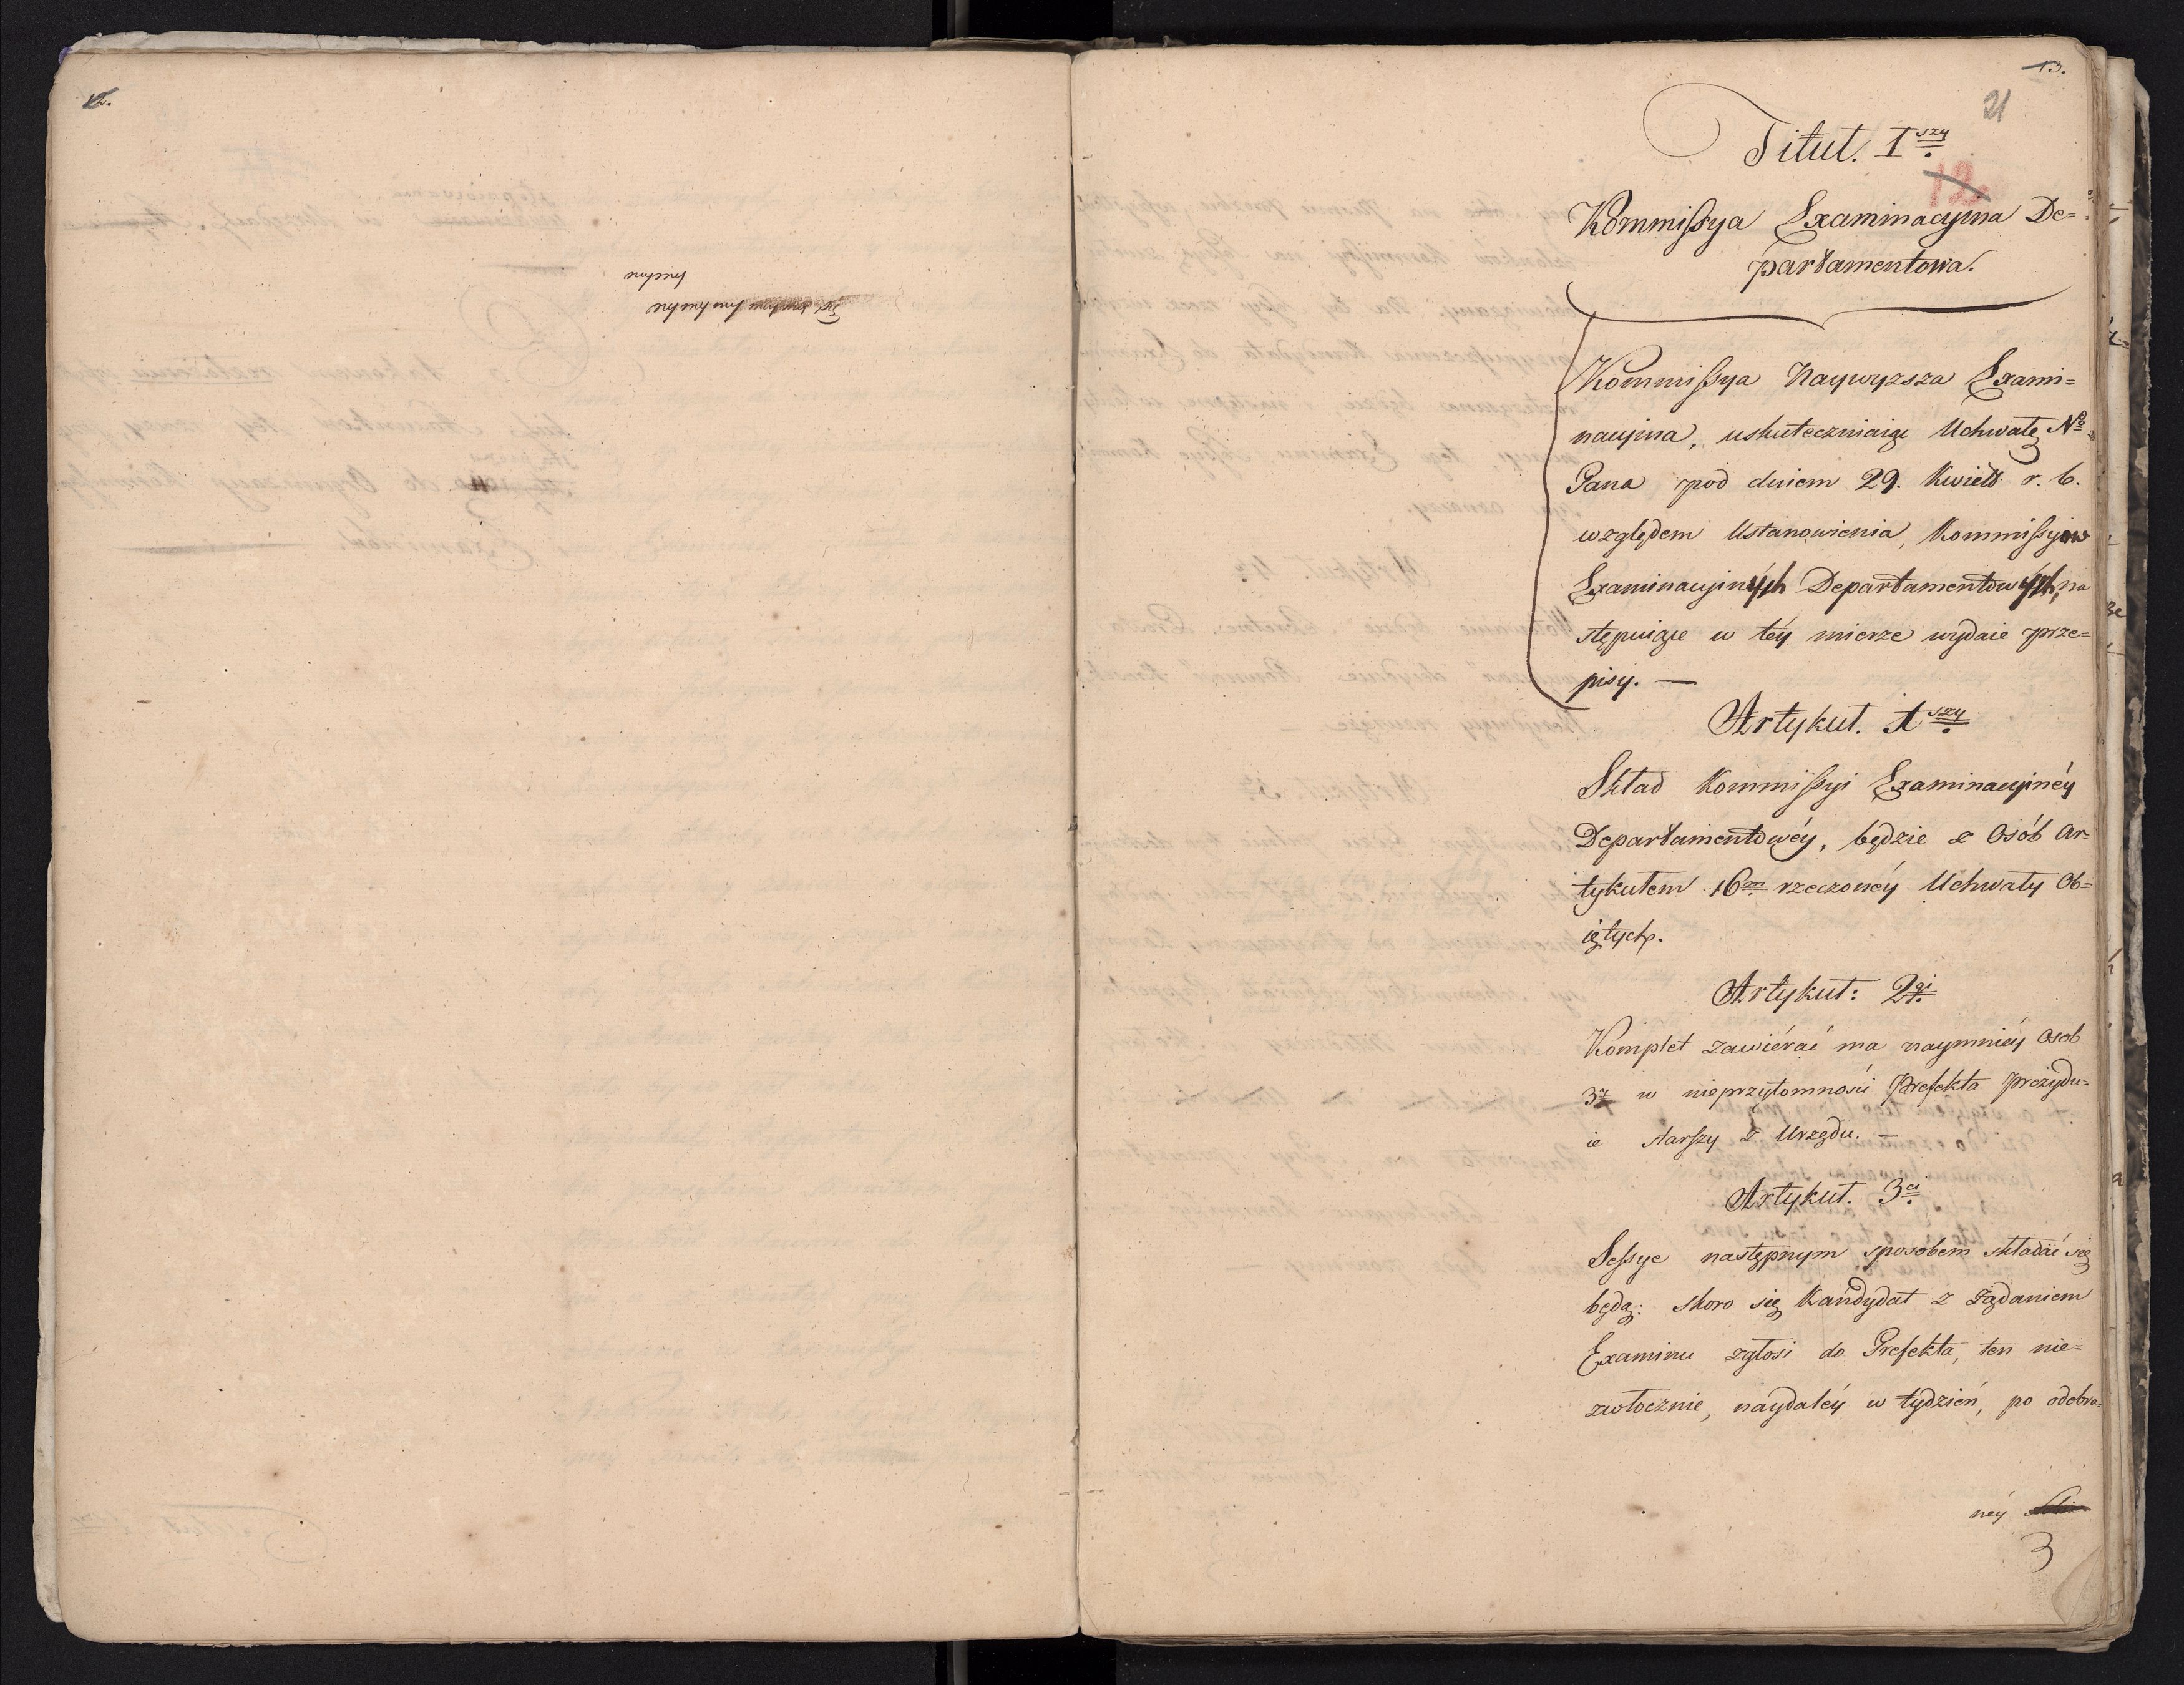 12.
13.
21
Tituł. 1szy
12
Kommissya Examinacyina De=
partamentowa.
Kommissya Naywyzsza Exami=
nacyina, uskuteczniaiąc Uchwałę No
Pana pod dniem 29. Kwiet r. b.
względem Ustanowienia, Kommissyiow
Examinacyinych Departamentowych, na
stępuiące w téy mierze wydaie prze=
pisy. —
Artykuł. 1szy
Skład Kommissyi Examinacyinéy
Departamentowéy, będzie z Osób Ar=
tykułem 16m rzeczonéy Uchwały Ob=
iętych.
Artykuł: 2gi
Komplet zawiérać ma naymniéy Osob
3z w nieprzytomności Prefekta prezydu=
ie starszy z Urzędu. —
Artykuł. 3ci
Sessye następnym sposobem składać się
będą: skoro się Kandydat z żądaniem
Examinu zgłosi do Prefekta, ten nie=
zwłocznie, naydaléy w tydzień, po odebra=
néy
3